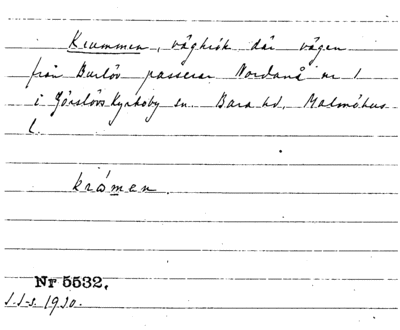 Krummen, vägkrök där vägen
från Burlöv passerar Nordanå nr 1
i Görslövs Kyrkoby sn. Bara hd, Malmöhus
l.
kråmen.
Nr 5532.
1930.